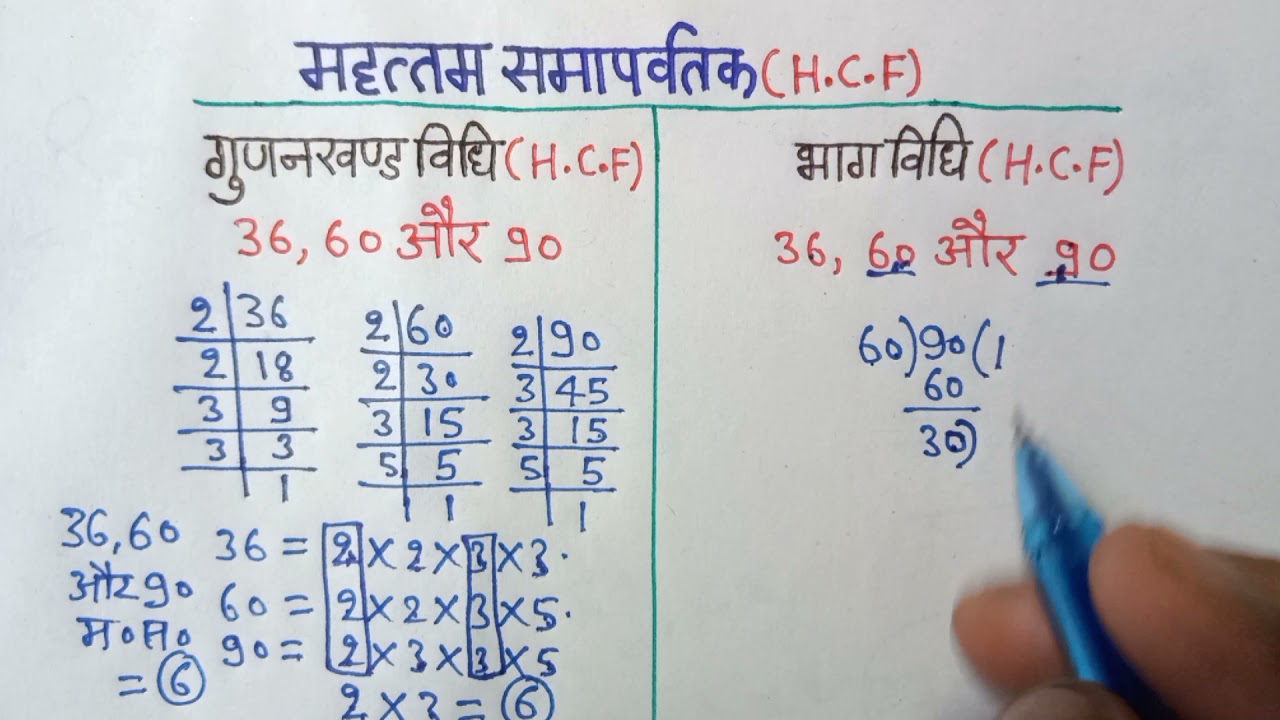 महत्तम समापर्वतक (H.C.F)
गुणनखण्ड विधि (H.C.F)
36, 60 और 90
2 | 36
2 | 18
3 | 9
3 | 3
1
2 | 60
2 | 30
3 | 15
5 | 5
1
2 | 90
3 | 45
3 | 15
5 | 5
1
36, 60
और 90
म॰स॰
= 6
36 = 2 × 2 × 3 × 3.
60 = 2 × 2 × 3 × 5.
90 = 2 × 3 × 3 × 5
2 × 3 = 6
भाग विधि (H.C.F)
36, 60 और 90
60)90(1
60
30)